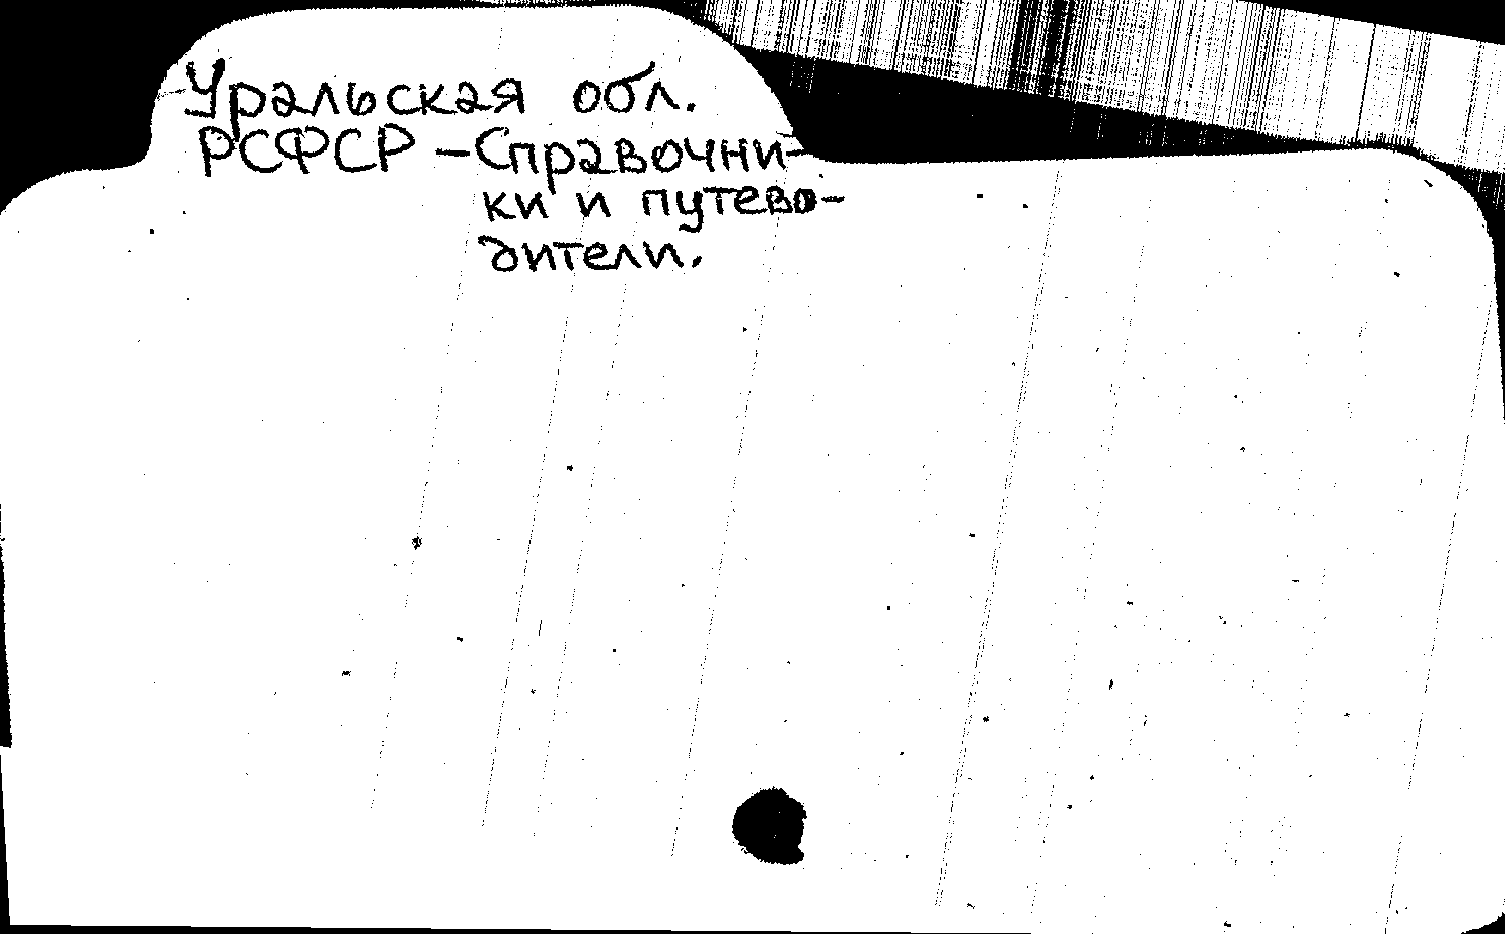 Уральская обл.
РСФСР – Справочни-
ки и путево-
дители.